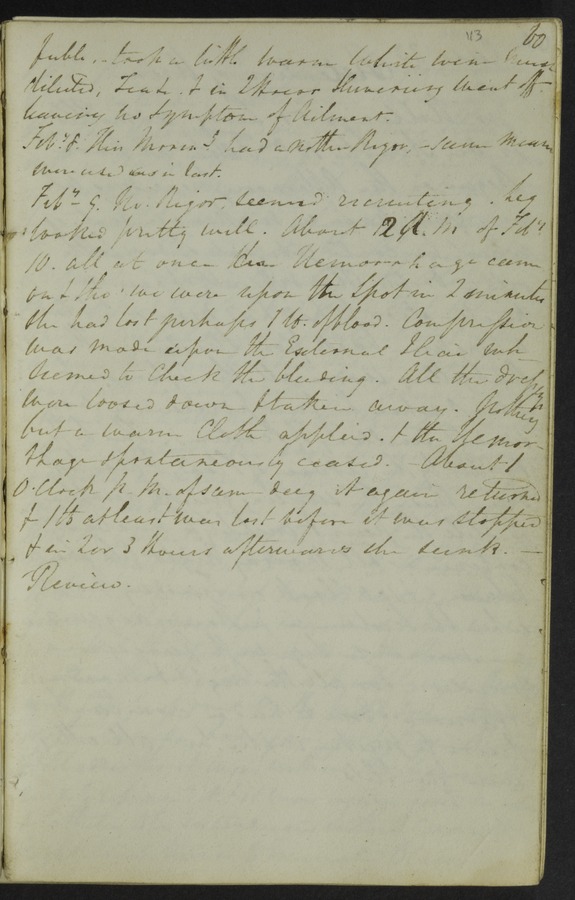 113 60
feeble, - took a little warm white wine much
diluted, Tea &c. & in 2 Hours Shivering went off
leaving no Symptom of Ailment.
Feby. 8. This Morng. had another Rigor, - same means
were used as in last.
Feby. 9. No. Rigor. seemed recruiting. leg
looked pretty well. About 2 A.M. of Feby.
10. all at once the Hemorrhage came
on & tho' we were upon the Spot in 2 minutes
she had lost perhaps 1 lb. of blood. Compression
was made upon the External Iliac wh.
seemed to Check the bleeding. All the dressings
were loosed down & taken away. Nothing
but a warm Cloth applied. & the Hemor-
rhage spontaneously ceased. - About 1
O'Clock p.m. of same day it again returned
& 1 lb at least was lost before it was stopped
& in 2 or 3 Hours afterwards she sunk. -
Review.